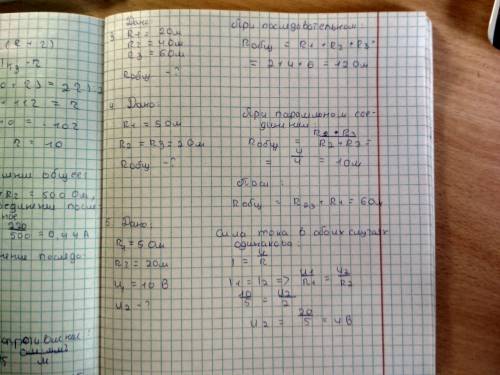 (R + 2)
+ R2 = 500 Ом,
220
500 = 0,44 А
R = 10
3. Дано:
R1 = 2 Ом
R2 = 4 Ом
R3 = 6 Ом
Rобщ - ?
При последовательном:
Rобщ = R1 + R2 + R3 =
= 2 + 4 + 6 = 12 Ом
4. Дано:
R1 = 5 Ом
R2 = R3 = 2 Ом
Rобщ - ?
При параллелном сое-
динении
Rобщ = R2 • R3 / R2 + R3 =
= 4/4 = 1 Ом
Rобщ = R23 + R1 = 6 Ом
5. Дано:
R1 = 5 Ом
R2 = 2 Ом
U1 = 10 В
U2 - ?
Сила тока в обоих случаях
одинакова:
I = U/R
I1 = I2 => U1/R1 = U2/R2
10/5 = U2/2
U2 = 20/5 = 4 В